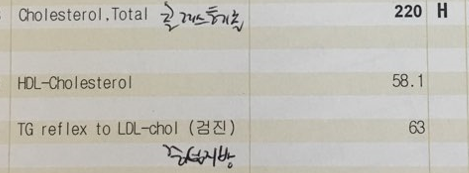 Cholesterol.Total 콜레스테롤 220 H
HDL-Cholesterol 58.1
TG reflex to LDL-chol (검진) 63
중성지방